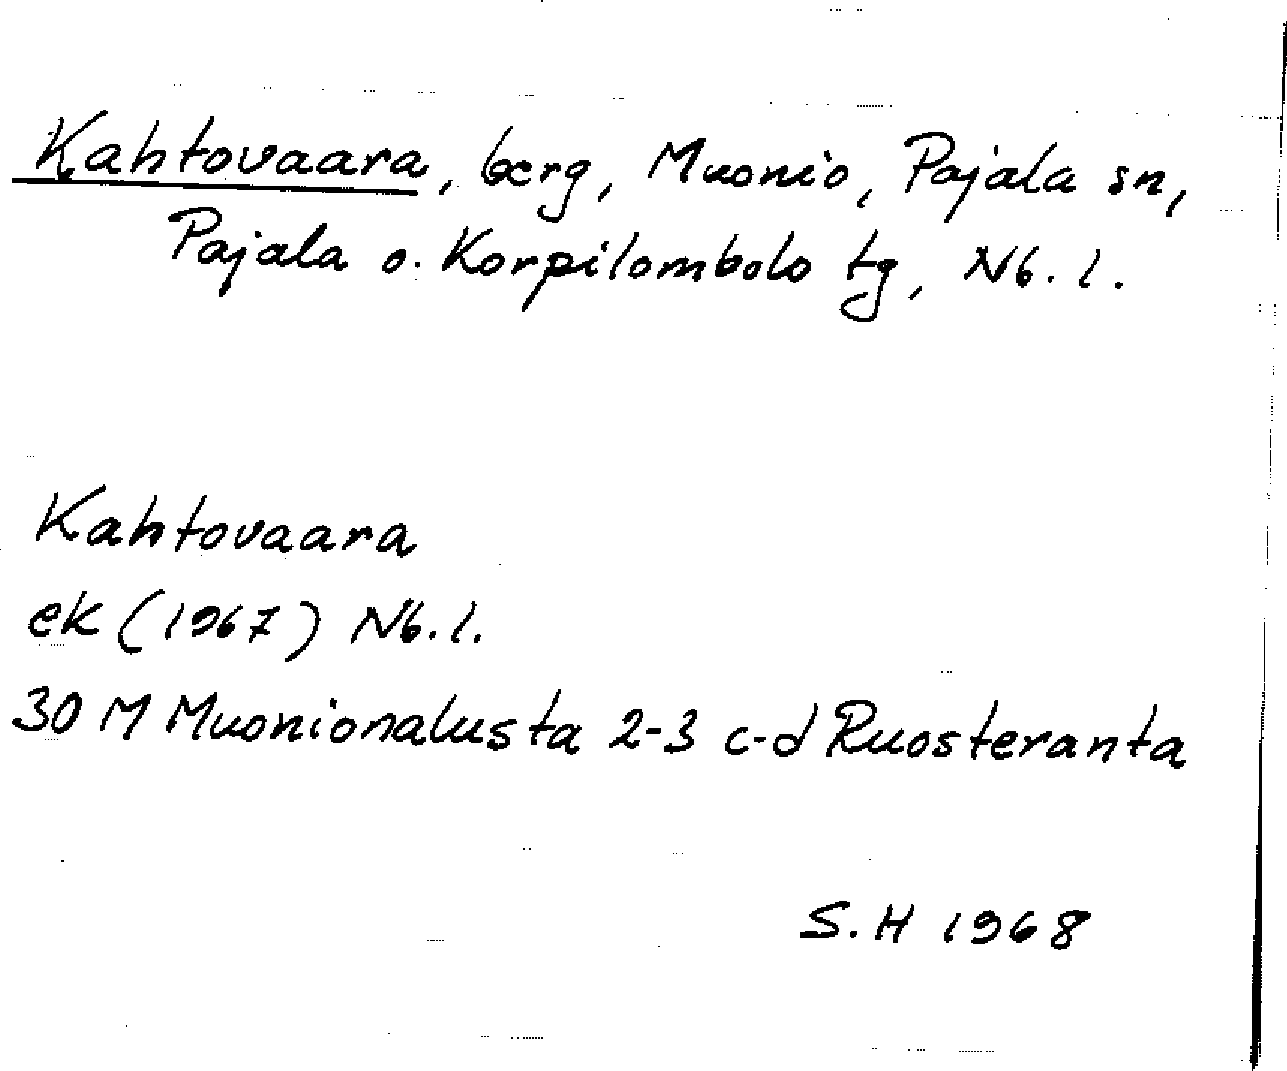 Kahtovaara, berg, Muonio, Pajala sn,
Pajala o. Korpilombolo tg, Nb. l.
Kahtovaara
ek (1967) Nb. l.
30 M Muonionalusta 2-3 c-d Ruosteranta
S. H 1968